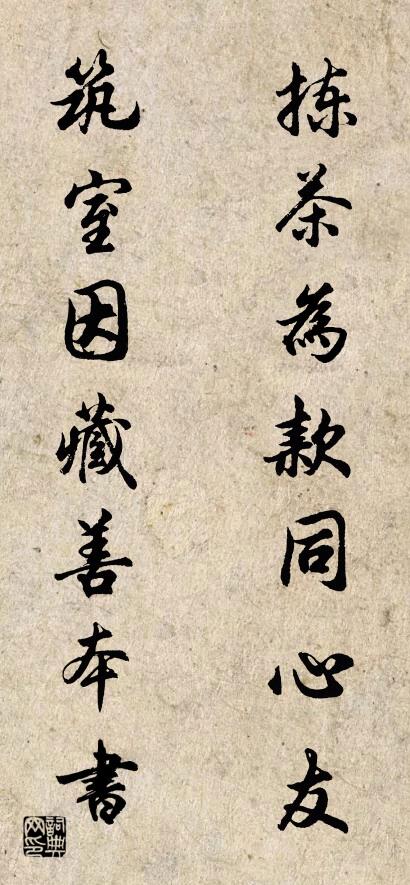 拣茶為款同心友
筑室因藏善本書
詞典网印